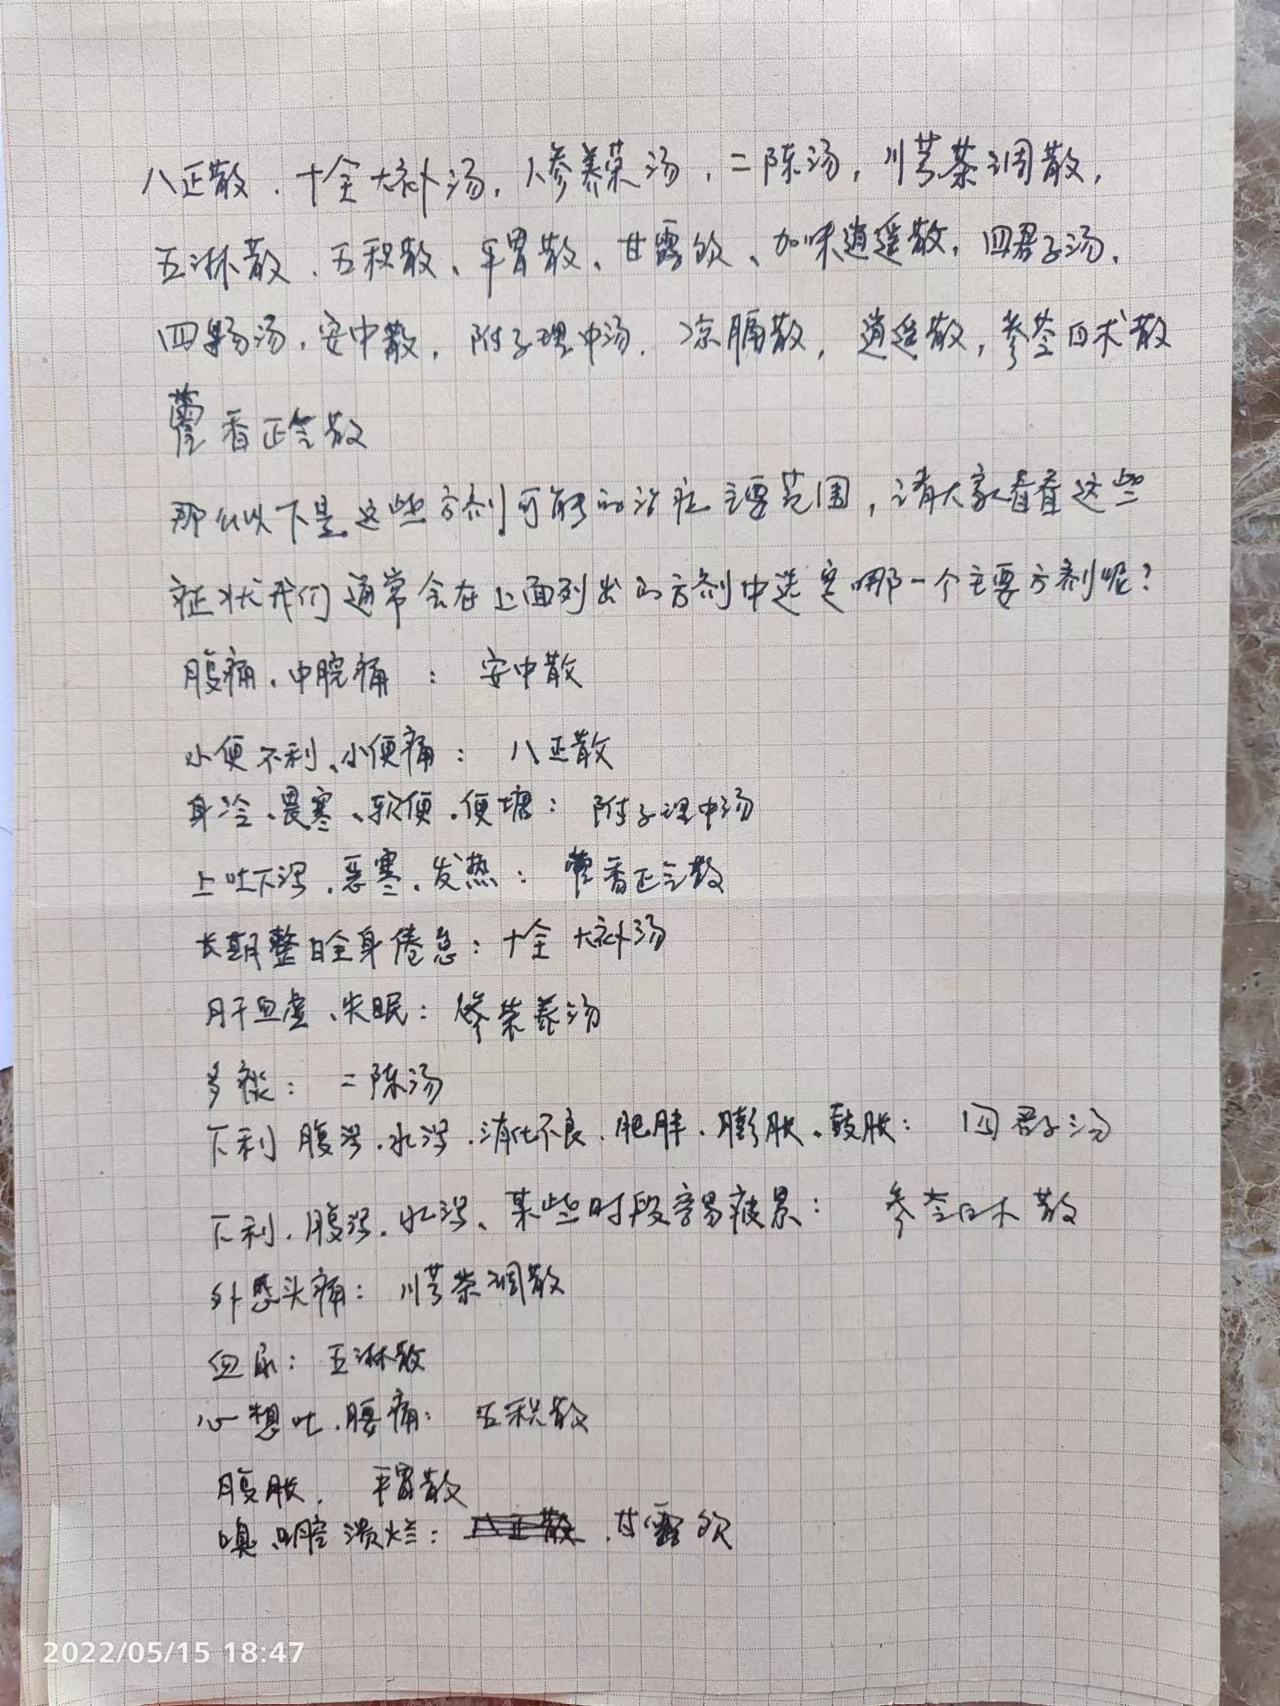 八正散、十全大补汤，人参养荣汤，二陈汤，川芎茶调散，
五淋散、五积散、平胃散、甘露饮、加味逍遥散，四君子汤，
四物汤，安中散，附子理中汤，凉膈散，逍遥散，参苓白术散
藿香正气散
那么以下是这些方剂可能的治症主要范围，请大家看看这些
症状我们通常会在上面列出的方剂中选定哪一个主要方剂呢？
腹痛、中脘痛：安中散
小便不利、小便痛：八正散
身冷、畏寒、软便、便塘：附子理中汤
上吐下泻、恶寒、发热：藿香正气散
长期整日全身倦怠：十全大补汤
肝血虚、失眠：人参荣养汤
多痰：二陈汤
下利 腹泻、水泻、消化不良、肥胖、膨胀、鼓胀：四君子汤
下利、腹泻、水泻、某些时段容易疲累：参苓白术散
外感头痛：川芎茶调散
血尿：五淋散
心想吐、腰痛：五积散
腹胀、平胃散
口腔溃烂：八正散、甘露饮
2022/05/15 18:47